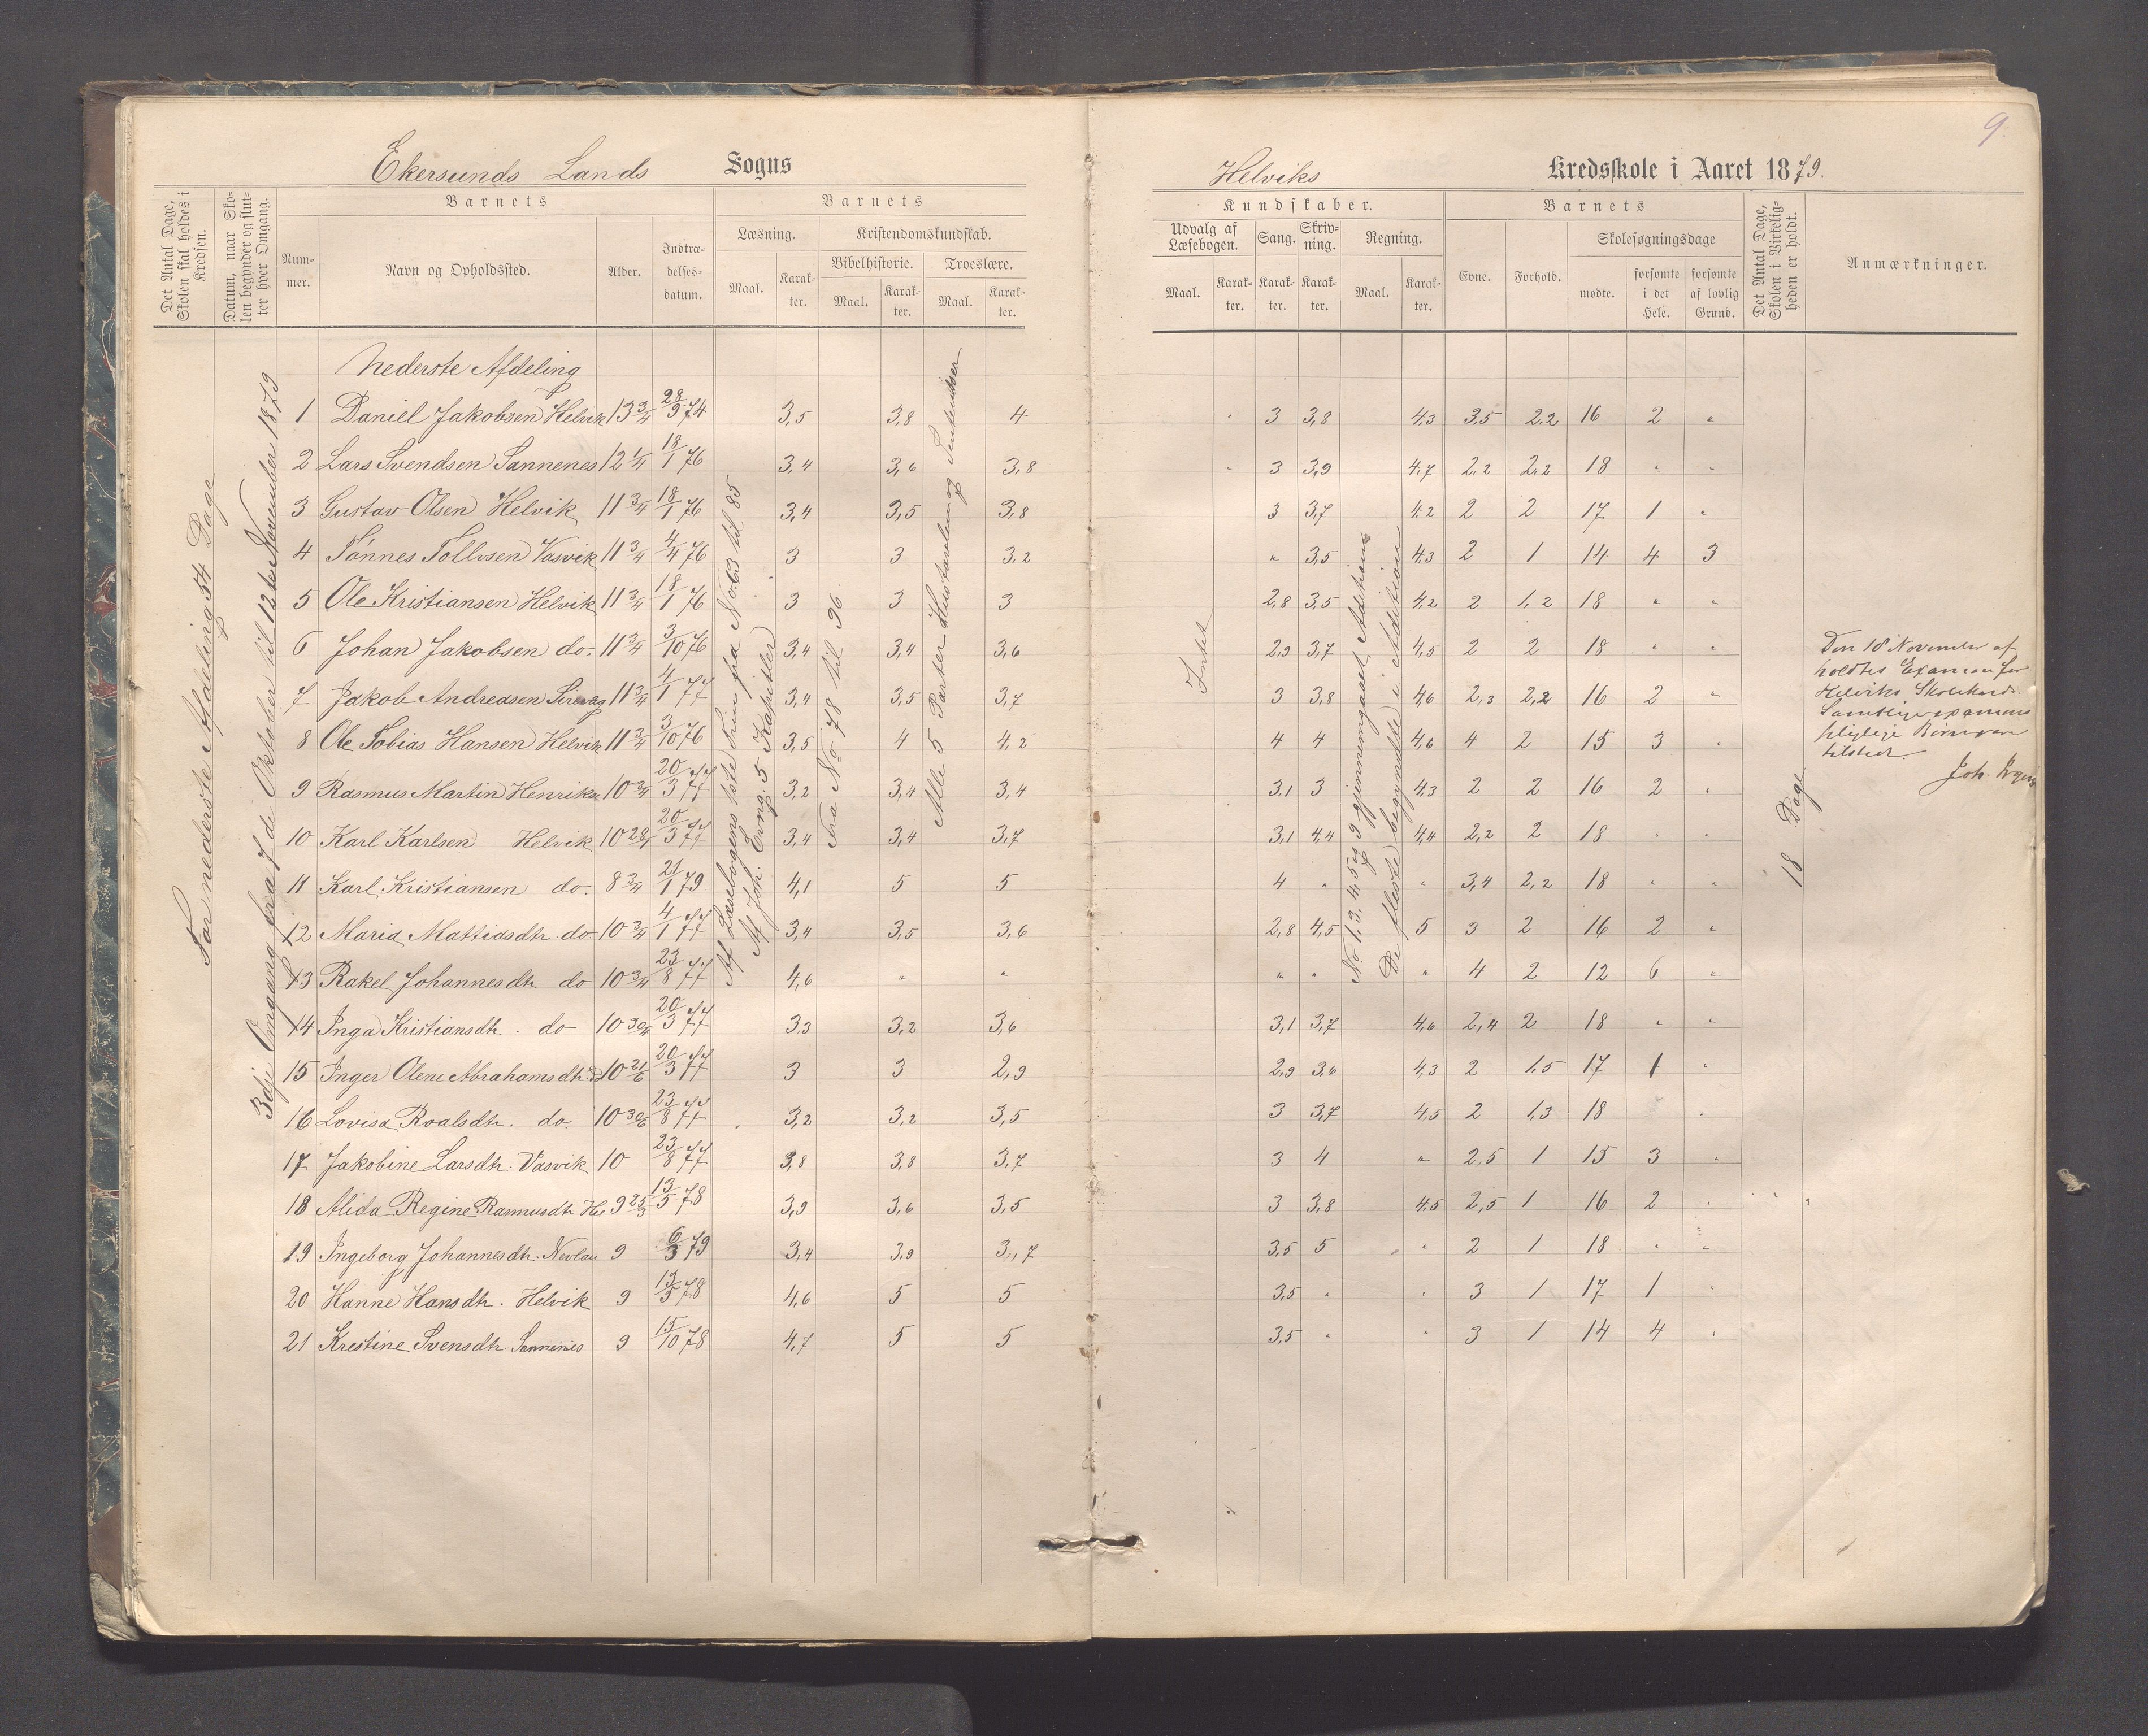 9.
Ekersunds Lands Sogns
Helviks Kredsskole i Aaret 1879.
Det Antal Dage, Skolen skal holdes i Kredsen.
Datum, naar Skolen begynder og slutter hver Omgang.
Barnets
Nummer.
Navn og Opholdssted.
Alder.
Indtrædelsesdatum.
Barnets
Læsning.
Maal.
Karakter.
Kristendomskundskab.
Bibelhistorie.
Maal.
Karakter.
Troeslære.
Maal.
Karakter.
Kundskaber.
Udvalg af Læsebogen.
Maal.
Karakter.
Sang.
Karakter.
Skrivning.
Karakter.
Regning.
Maal.
Karakter.
Barnets
Evne.
Forhold.
Skolesøgningsdage
mødte.
forsømte i det Hele.
forsømte af lovlig Grund.
Det Antal Dage, Skolen i Virkeligheden er holdt.
Anmærkninger.
For nederste Afdeling 54 Dage
3dje Omgang fra 7de Oktober til 12te November 1879
Nederste Afdeling
1 Daniel Jakobsen Helvik 13 3/4 28/9 74 3,5 3,8 4 " 3 3,8 4,3 3,5 2,2 16 2 "
2 Lars Svendsen Sannenes 12 1/4 18/1 76 3,4 3,6 3,8 " 3 3,9 4,7 2,2 2,2 18 " "
3 Gustav Olsen Helvik 11 3/4 18/1 76 3,4 3,5 3,8 3 3,7 4,2 2 2 17 1 "
4 Tønnes Tollvsen Vasvik 11 3/4 4/4 76 3 3 3,2 " 3,5 4,3 2 1 14 4 3
5 Ole Kristiansen Helvik 11 3/4 18/1 76 3 3 3 2,8 3,5 4,2 2 1,2 18 " "
6 Johan Jakobsen do. 11 3/4 3/10 76 3,4 3,4 3,6 2,9 3,7 4,5 2 2 18 " "
7 Jakob Andreasen Sirevåg 11 3/4 4/1 77 3,4 3,5 3,7 3 3,8 4,6 2,3 2,2 16 2 "
8 Ole Tobias Hansen Helvik 11 3/4 3/10 76 3,5 4 4,2 4 4 4,6 4 2 15 3 "
9 Rasmus Martin Henriks. 10 3/4 20/3 77 3,2 3,4 3,4 3,1 3 4,3 2 2 16 2 "
10 Karl Karlsen Helvik 10 20/3 77 3,4 3,4 3,7 3,1 4,4 4,4 2,2 2 18 " "
11 Karl Kristiansen do. 8 3/4 21/1 79 4,1 5 5 4 " " 3,4 2,2 18 " "
12 Maria Mattiasdtr. do. 10 3/4 4/1 77 3,4 3,5 3,6 2,8 4,5 5 3 2 16 2 "
13 Rakel Johannesdtr do 10 3/4 23/8 77 4,6 " " " " " 4 2 12 6 "
14 Inga Kristiansdtr. do 10 20/3 77 3,3 3,2 3,6 3,1 3,7 4,6 2,4 2 18 " "
15 Inger Olene Abrahamsdtr 10 20/3 77 3 3 2,9 2,9 3,6 4,3 2 1,5 17 1 "
16 Lovisa Roalsdtr. do. 10 23/8 77 3,2 3,2 3,5 3 3,7 4,5 2 1,3 18 "
17 Jakobine Larsdtr. Vasvik 10 23/8 77 3,8 3,8 3,7 3 4 " 2,5 1 15 3 "
18 Alida Regine Rasmusdtr He. 9 13/5 78 3,9 3,6 3,5 3 3,8 4,5 2,5 1 16 2 "
19 Ingeborg Johannesdtr. Nevlau 9 6/3 79 3,4 3,9 3,7 3,5 5 " 2 1 18 " "
20 Hanne Hansdtr. Helvik 9 13/5 78 4,6 5 5 3,5 " " 3 1 17 1 "
21 Krestine Svensdtr. Sannenes 9 15/10 78 4,7 5 5 3,5 " " 3 1 14 4 "
Af Læsebogens 1ste Trin fra No. 63 til 85
Af Joh. Evng. 5 Kapitler
Fra No 78 til 96
Alle 5 Parter Hustavlen og
Intet
No 1,3,4,5 og 9 gjennemgaaet Aditions
De fleste begyndte i Addition
18 Dage
Den 18 November af-
holdtes Examen for
Helviks Skolekreds.
Samtlige examens
pligtige Børn var
tilstede.
Joh.